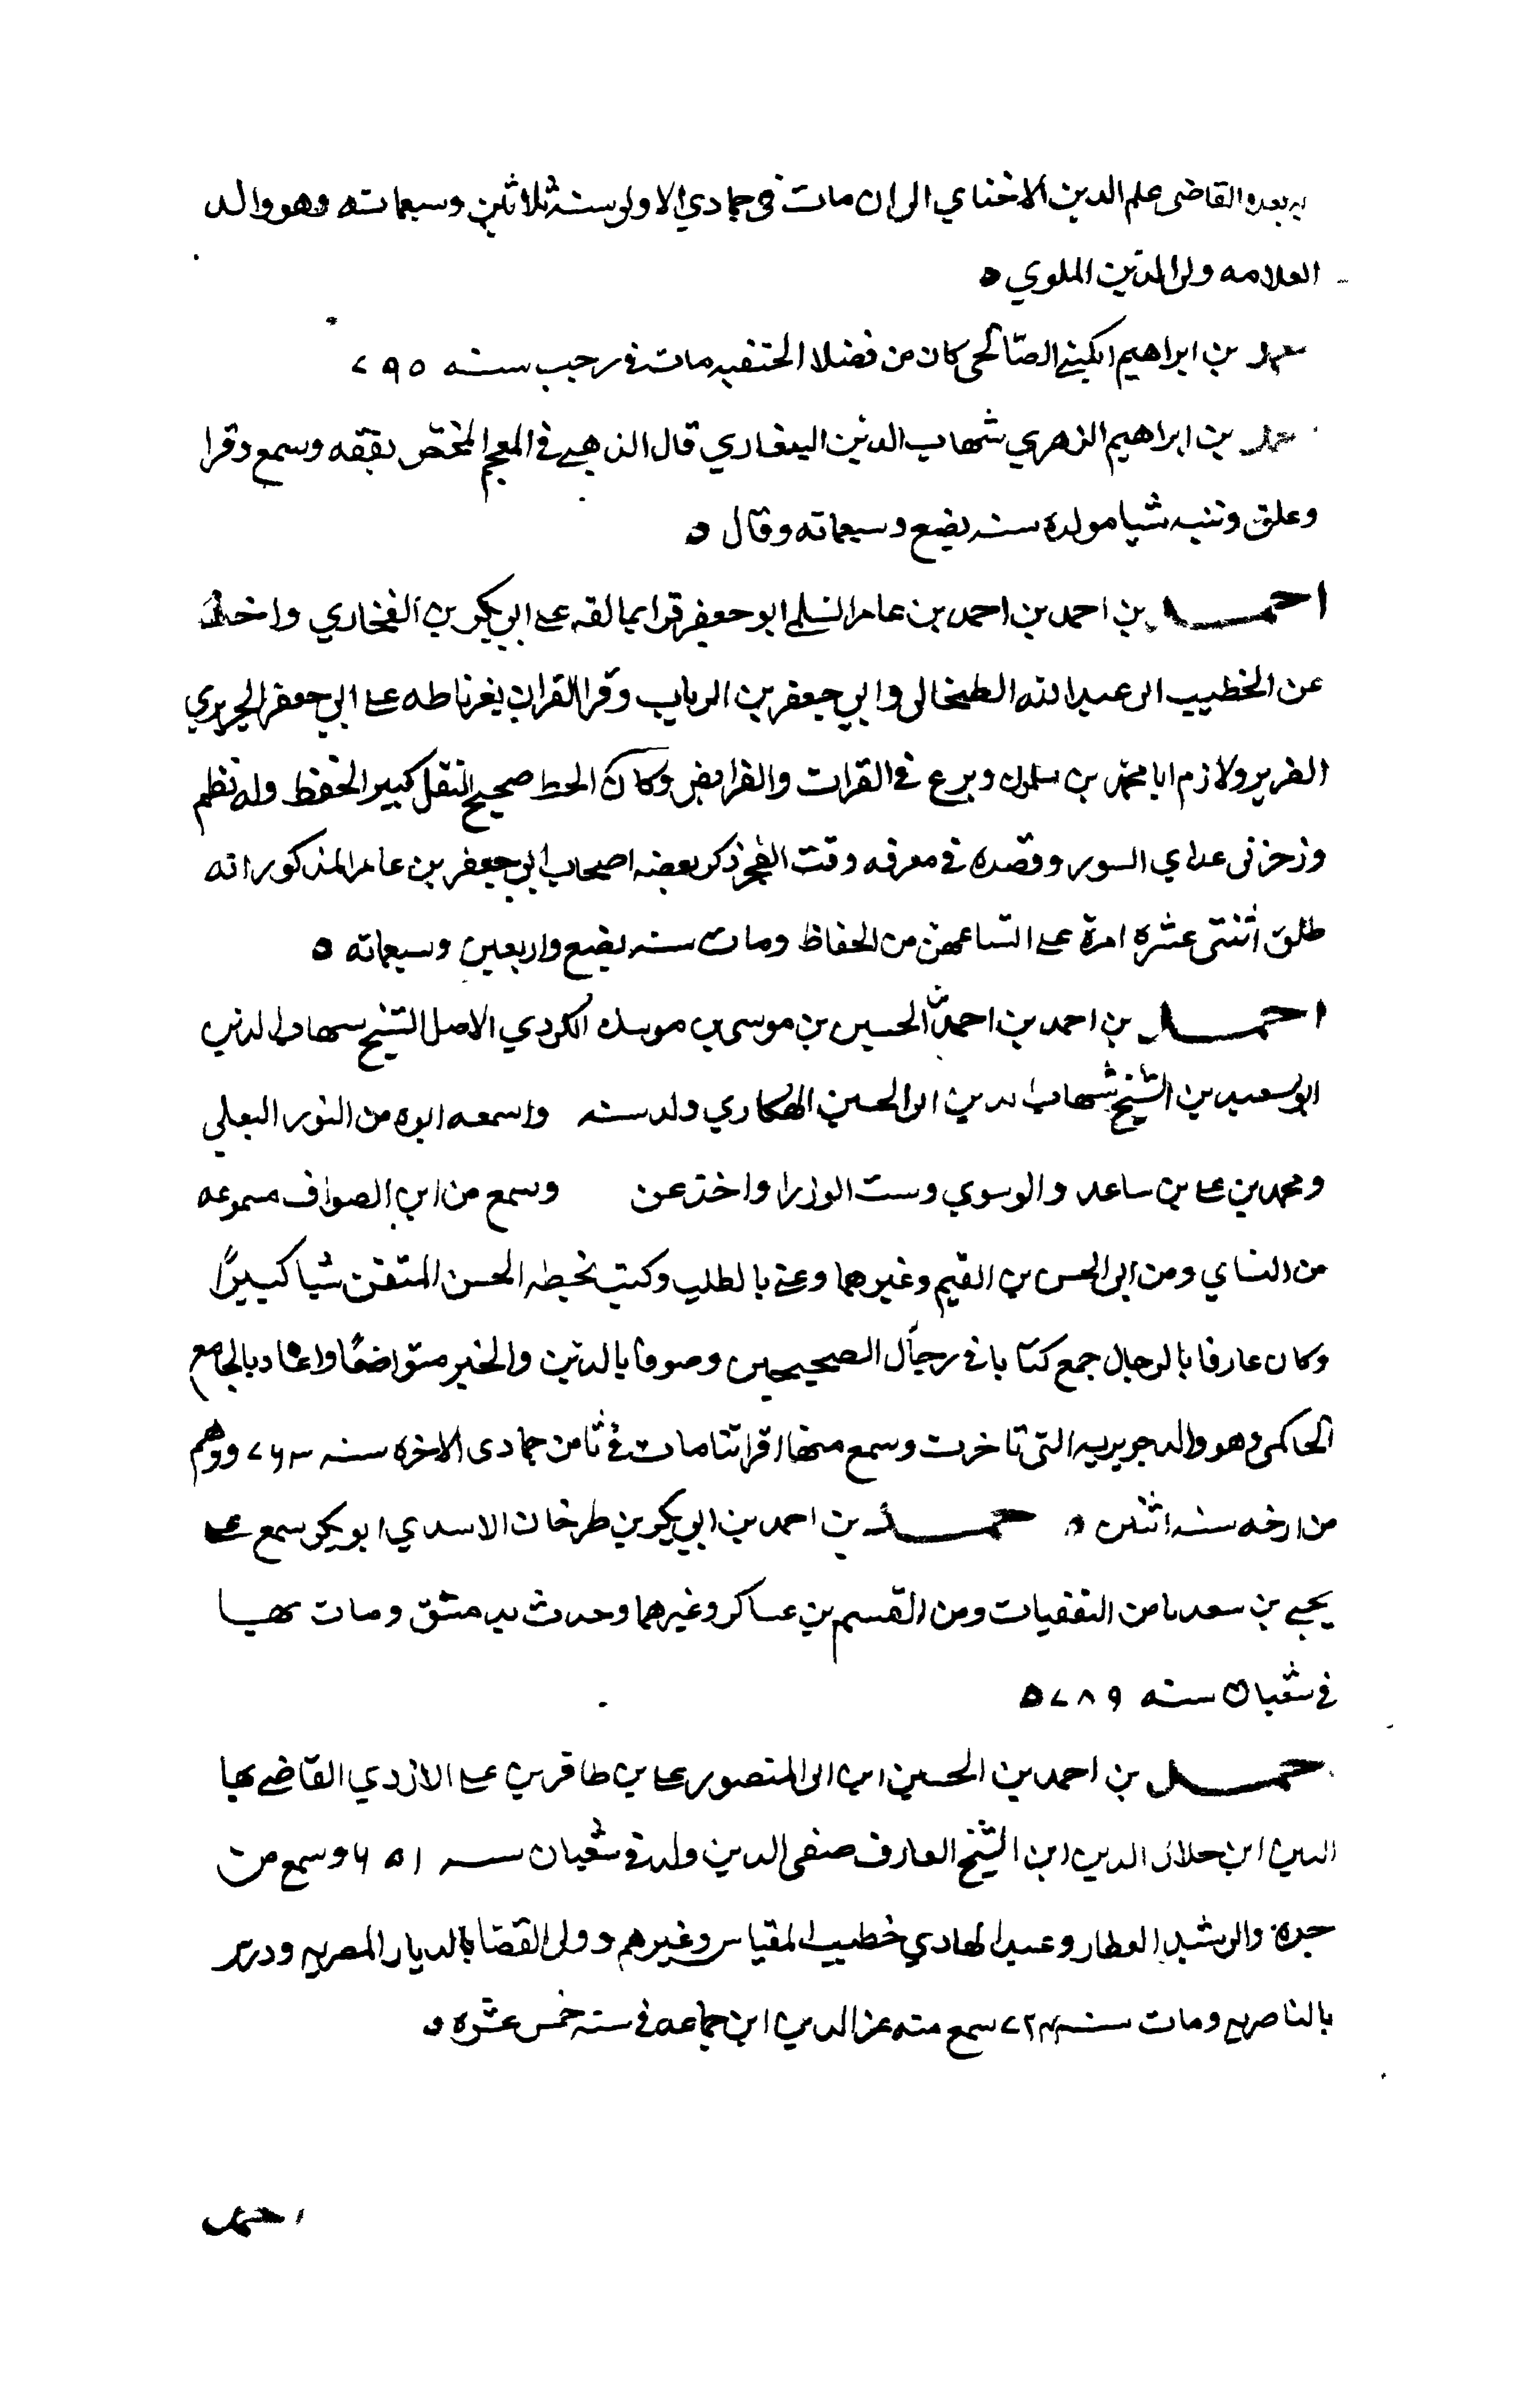 به بعده القاضى علم الدين الاخناي الى ان مات فى جمادي الاولى سنه ثلاثين وسبعماته وهو والد
العلامه ولى الدين الملوي ه
محمد بن ابراهيم الكينى الصالحى كان من فضلا الحنفيه مات فى رجب سنه ٧٩٥
حمد بن ابراهيم الزهري شهاب الدين البغداري قال الذهبى فى المعجم المختص تفقه وسمع وقرا
وعلق وتنبه شيا مولده سنه بضع وسبعماته وقال ه
احمد بن احمد بن احمد بن عامر السلمى ابو جعفر قرا بمالقه على ابى بكر بن الفخاري واخذ
عن الخطيب ابى عبد الله الطنجالى وابى جعفر بن الزيات وقرا القران بغرناطه على ابى جعفر الجزيري
الضرير ولازم ابا محمد بن سلمون وبرع فى القرات والفرايض وكان الخط صحيح النقل كبير الحفظ وله نظم
ورجز فى عد اي السور وقصده فى معرفه وقت الفجر ذكر بعضه اصحاب ابى جعفر بن عامر المذكور انه
طلق اثنتى عشره امرة على اتساعهن من الحفاظ ومات سنه بضع واربعين وسبعماته ه
احمد بن احمد بن احمد بن الحسين بن موسى بن موسك الكردي الاصل الشيخ شهاب الدين
ابو سعيد بن الشيخ شهاب الدين ابى الحسين الهكاري ولد سنه واسمعه ابوه من النور البعلي
ومحمد بن على بن ساعد والموسوي وست الوزرا واخذ عن وسمع من ابن الصواف مسموعه
من النساي ومن ابى الحسن بن القيم وغيرهما وعنى بالطلب وكتب بخطه الحسن المتقن شيا كبيرًا
وكان عارفا بالرجال جمع كتابا فى رجال الصحيحين وصوفا بالدين والخير متواضعًا واعاد بالجامع
الحاكمى وهو والد جويريه التى تاخرت وسمع منها اقراننا مات فى ثامن جمادى الاخره سنه ٧٦٣ ووهم
من ارخه سنه اثنين ه حمد بن احمد بن ابى بكر بن طرخان الاسدي ابو بكر سمع على
يحيى بن سعد ثامن الثقفيات ومن القسم بن عساكر وغيرهما وحدث بدمشق ومات بها
فى شعبان سنه ٧٨٩ ه
حمد بن احمد بن الحسين ابن ابى المنصور على بن ظافر بن على الازدي القاضى بها
الدين ابن جلال الدين ابن الشيخ العارف صفى الدين ولد فى شعبان سنه ٦٥١ وسمع من
جده والرشيد العطار وعبد الهادي خطيب المقياس وغيرهم وولى القضا بالديار المصريه ودرس
بالناصريه ومات سنه ٧٢٣ سمع منه عز الدين ابن جماعه فى سنه خمس عشره ه
احمد